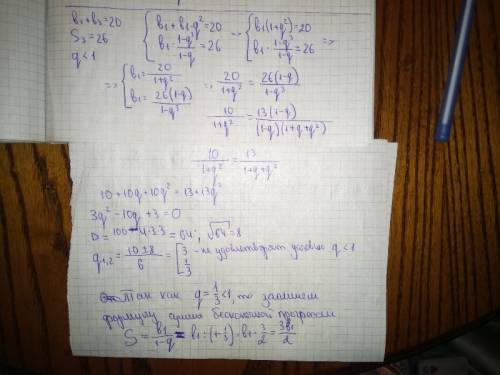 b₁+b₃=20
S₃=26
q<1
{b₁+b₁·q²=20
b₁·(1-q³)/(1-q)=26 =>
{b₁(1+q²)=20
b₁·(1-q³)/(1-q)=26 =>
=> {b₁=20/(1+q²)
b₁=26(1-q)/(1-q³)
20/(1+q²) = 26(1-q)/(1-q³)
10/(1+q²) = 13(1-q)/((1-q)(1+q+q²))
10/(1+q²) = 13/(1+q+q²)
10+10q+10q²=13+13q²
3q²-10q+3=0
D=100-4·3·3=64; √64=8
q₁,₂=(10±8)/6=[3 - не удовлетворят условию q<1
1/3
Так как q=1/3<1, то запишем
формулу сумма бесконечной прогрессии
S=b₁/(1-q)=b₁:(1-1/3)=b₁·3/2=3b₁/2